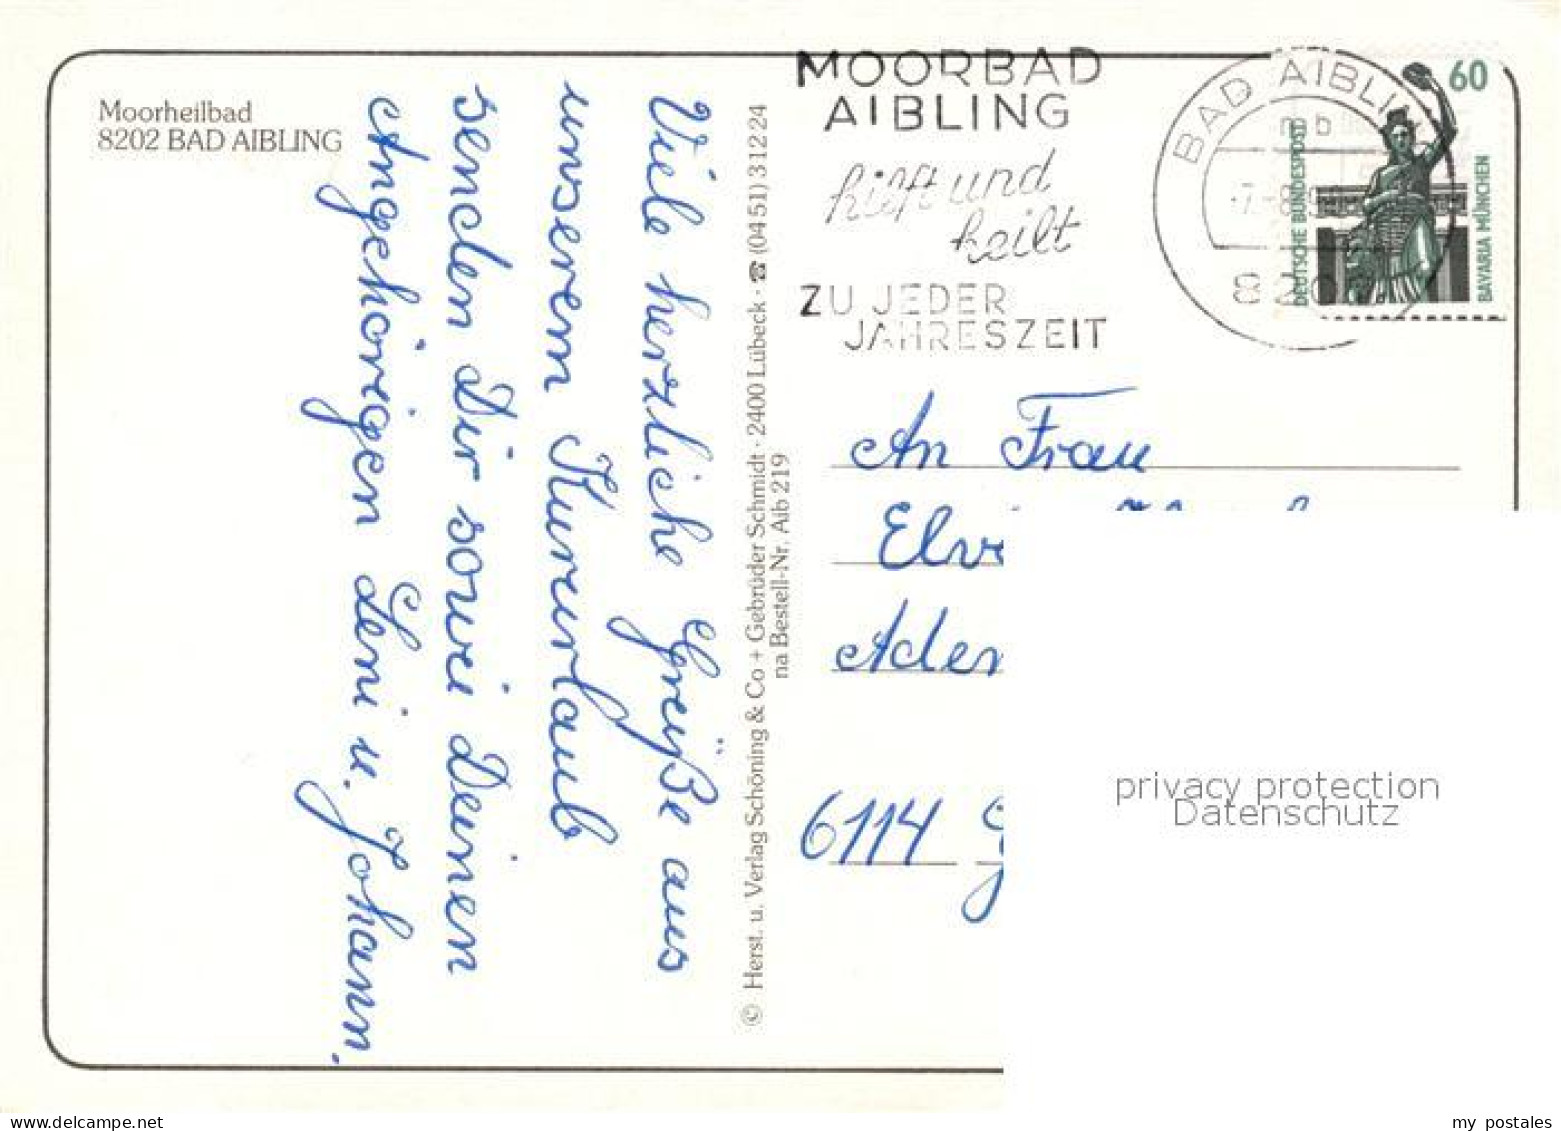 Moorheilbad
8202 BAD AIBLING
Viele herzliche Grüße aus
unserem Kururlaub
senden Dir sowei Deinen
Angehörigen Leni u. Johann.
© Herst. u. Verlag Schöning & Co + Gebrüder Schmidt · 2400 Lübeck · ☎ (04 51) 3 12 24
na Bestell-Nr. Aib 219
MOORBAD
AIBLING
hilft und
heilt
ZU JEDER
JAHRESZEIT
BAD AIBLING
mb
60
DEUTSCHE BUNDESPOST
BAVARIA MÜNCHEN
An Frau
Elvi
Aden
6114 G
privacy protection
Datenschutz
my postales